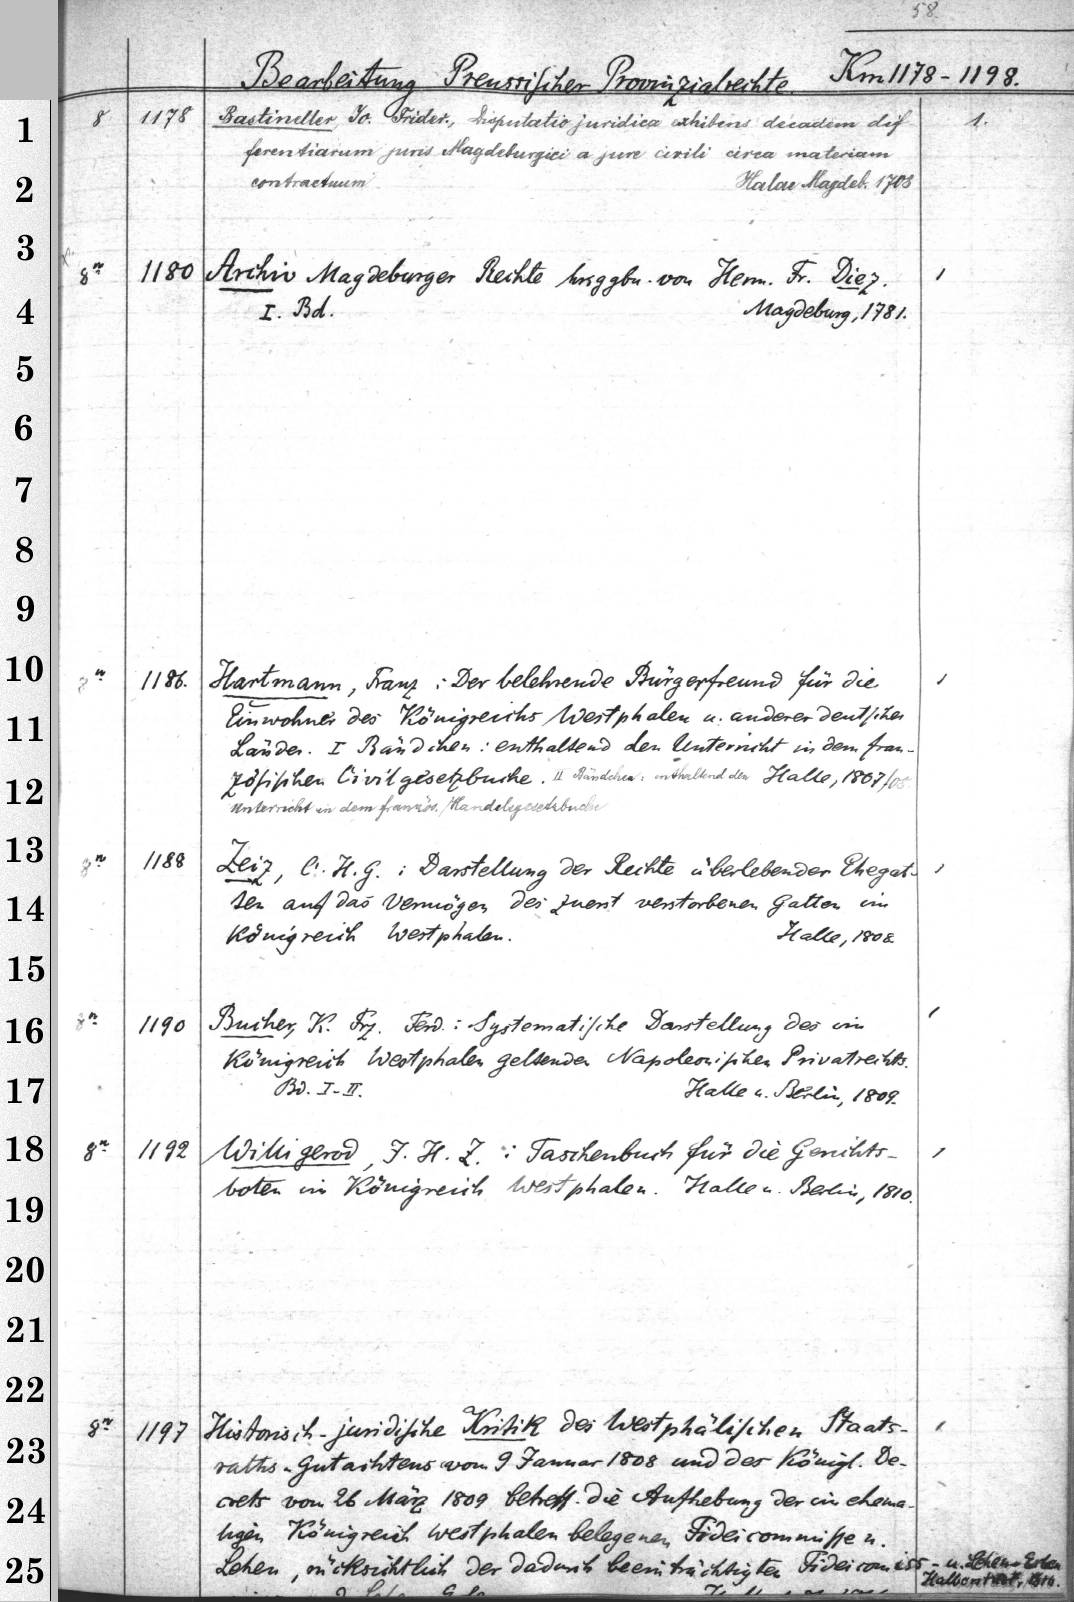 58.
Bearbeitung Preussischer Provinzialrechte. Km 1178-1198.
8 1178 Bastineller, Jo. Frider., Disputatio juridica exhibens decadem dif- 1.
ferentiarum juris Magdeburgici a jure civili circa materiam
contractuum Halae Magdeb. 1708
8n 1180 Archiv Magdeburger Rechte hrsggbn. von Herm. Fr. Diez. 1
I. Bd. Magdeburg, 1781.
8n 1186. Hartmann, Franz : Der belehrende Bürgerfreund für die 1
Einwohner des Königreichs Westphalen u. anderer deutscher
Länder. I Bändchen : enthaltend den Unterricht in dem fran-
zösischen Civilgesetzbuche. II Bändchen: enthaltend den Halle, 1807/08.
Unterricht in dem französ. Handelsgesetzbuche
8n 1188 Zeiz, C. H. G. : Darstellung der Rechte überlebender Ehegat- 1
ten auf das Vermögen des zuerst verstorbenen Gatten im
Königreich Westphalen. Halle, 1808
8n 1190 Bucher, K. Frz. Ferd. : Systematische Darstellung des im 1
Königreich Westphalen geltenden Napoleonischen Privatrechts.
Bd. I-II. Halle u. Berlin, 1809.
8n 1192 Willigerod, J. H. Z. : Taschenbuch für die Gerichts- 1
boten im Königreich Westphalen. Halle u. Berlin, 1810.
8n 1197 Historisch-juridische Kritik des Westphälischen Staats- 1
raths-Gutachtens vom 9 Januar 1808 und des Königl. De-
crets vom 26 März 1809 betreff. die Aufhebung der im ehema-
ligen Königreich Westphalen belegenen Fideicommisse u.
Lehen, rücksichtlich der dadurch beeinträchtigten Fideicomiss- u. Lehens-Erben
Halberstadt, 1816.
1
2
3
4
5
6
7
8
9
10
11
12
13
14
15
16
17
18
19
20
21
22
23
24
25